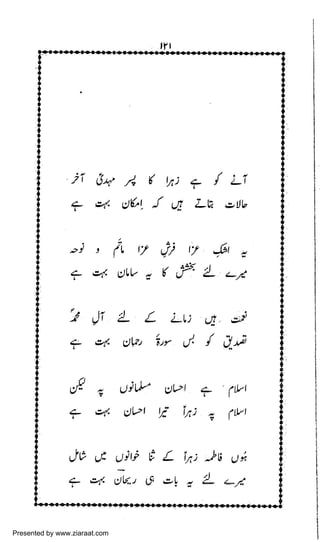 ۱۲۱
آنے کو ہے زہرا کا پسر مہدیؑ آخر
حالات بتاتے ہیں کہ اِمکان بہت ہے
یہ اشکِ عزا فرشِ عزا ماتم و نوحہ
میرے لئے بخشش کا یہ سامان بہت ہے
نعمت ہیں زمانے کے لئے آلِ محمدؐ
تصدیق کو بس سورۂ رحمان بہت ہے
اسلام ہے احسان مسلمانوں پہ لیکن
اسلام پہ زہراؑ تیرا احسان بہت ہے
ہُوں فاطمہ زہراؑ کے ثنا خوانوں میں شامل
میرے لئے یہ بات ہی ریحان بہت ہے
Presented by www.ziaraat.com